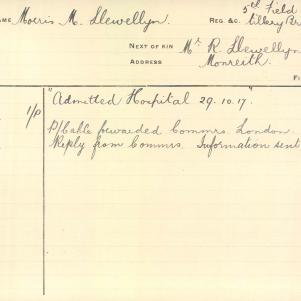 AME Morris M. Llewellyn.
5th Field
REG. &C. tillery Br
NEXT OF KIN Mr R. Llewellyn
ADDRESS Monreith.
F
1/p "Admitted Hospital 29.10.17".
P/Cable forwarded Commrs. London.
Reply from Commrs. Information sent